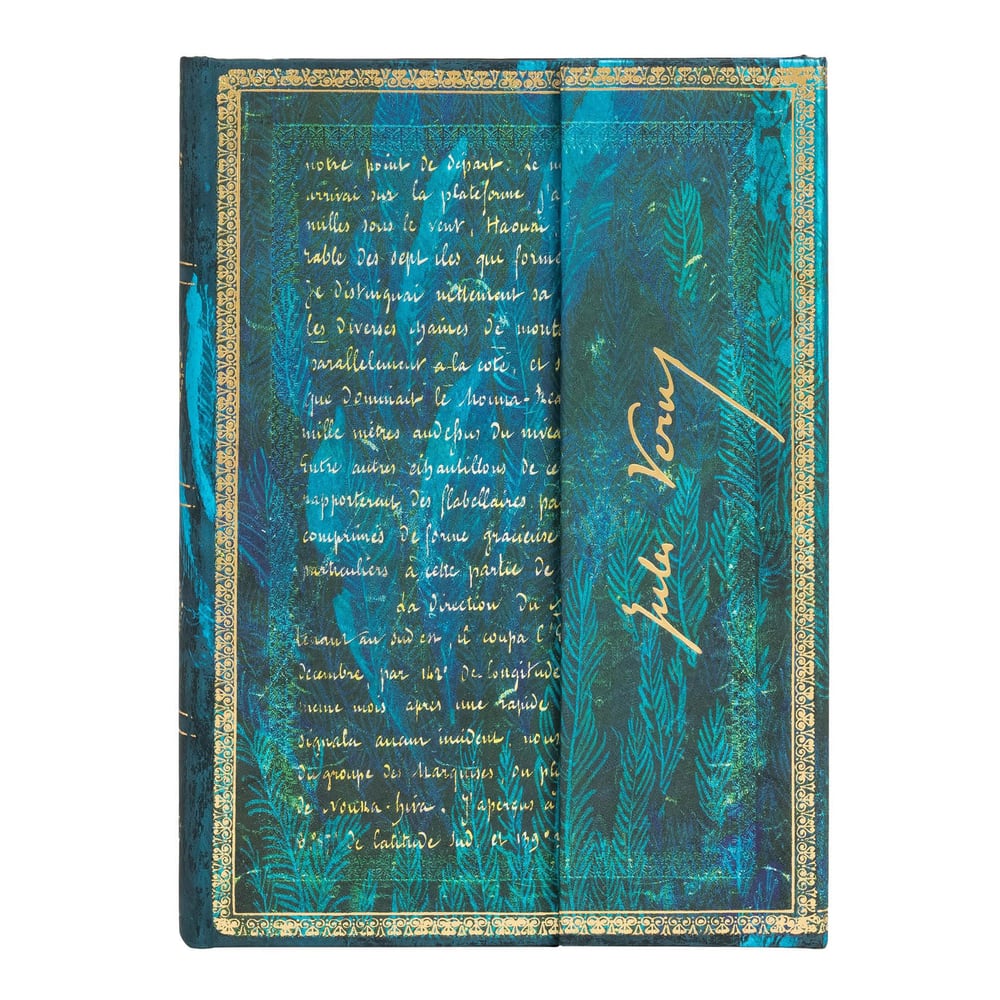 notre point de départ. Le
arrivai sur la plateforme j'a
milles sous le vent, Haouaï
rable des sept iles qui forme
Je distinguai nettement sa
les diverses chaines de mont
parallèlement a la cote, et s
que dominait le Mouna-Rea
mille mètres audessus du nivea
Entre autres échantillons de ce
rapporterent des flabellaires pa
comprimés de forme gracieuse
particuliers à cette partie de
La direction du
tenant au sud est, il coupa l'E
décembre par 142° de longitude
meme mois après une rapide
signala aucun incident, nous
du groupe des Marquises, du pl
de Nouka-hiva. J'aperçus à
de latitude sud, et 139°
Jules Verne